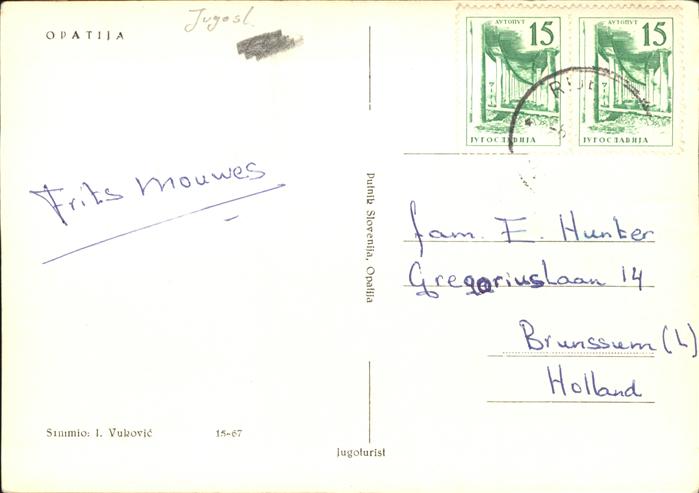 OPATIJA
Jugosl.
АУТОПУТ
15
ЈУГОСЛАВИЈА
АУТОПУТ
15
ЈУГОСЛАВИЈА
Frits Mouwes
Putnik Slovenija, Opatija
fam. E. Hunker
Gregoriuslaan 14
Brunssum (L)
Holland
Snimio: I. Vuković 15-67
Jugoturist